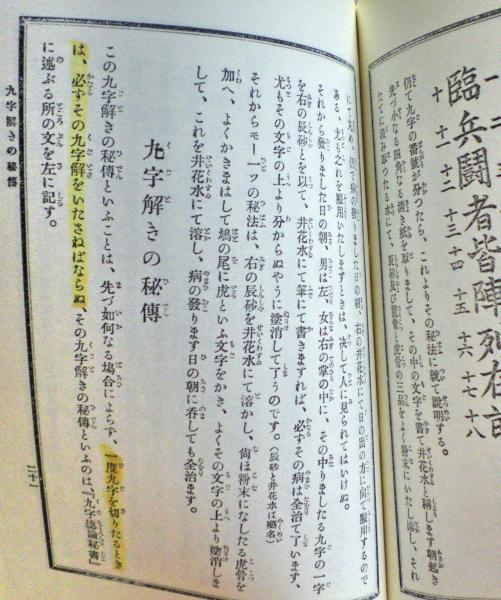 臨兵鬪者皆陣列在
十 十一 十二 十三 十四 十五 十六 十七 十八
仍て九字の番號が分つたら、これよりその秘法に就て説明する。
先づ小なる四角なる清き紙を取りまして、その中の文字を書き井花水と稱します朝起き
たてに汲み取つたる水にて、辰砂及び龍骨と虎骨の三品をよく粉末にいたし溶し、それ
ある、尤も之れを服用いたしますときは、決して人に見られてはいけぬ。
それから發りました日の朝、男は左、女は右の掌の中に、その中りましたる九字の一字
を右の辰砂とを以て、井花水にて筆にて書きますれば、必ずその病は全治て了います、
尤もその文字の上より分からぬやうに塗消して了うのです。(辰砂と井花水は藥名)
それからモ一ツの秘法は、右の辰砂を井花水にて溶かし、尙ほ粉末になしたる虎骨を
加へ、よくかきまはして鳩の尾に虎といふ文字をかき、よくその文字の上より塗消しま
して、これを井花水にて溶し、病の發ります日の朝に呑しても全治ます。
九字解きの秘傳
この九字解きの秘傳といふことは、先づ如何なる塲合によらず、一度九字を切りたるとき
は、必ずその九字解をいたさねばならぬ、その九字解きの秘傳といふのは『九字總論秘書』
に述ぶる所の文を左に記す。
九字解きの秘傳
二十一